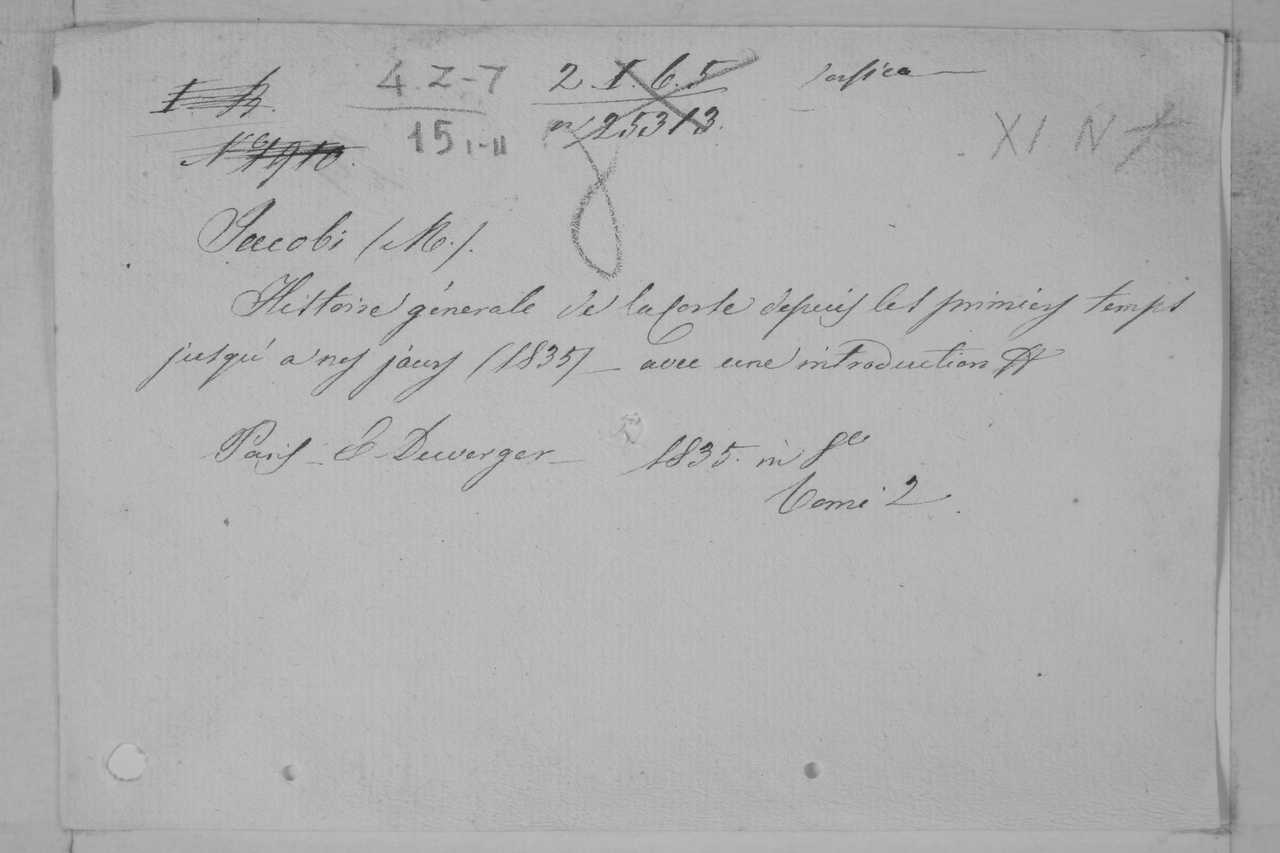 4. Z-7 2. I. 6. 5 Corsica
15 I-II n° 25313. XI N
N° 1910.
Jacobi (M.).
Histoire génerale de la Corse depuis les primiers temps
jusqu' a nos jours (1835) — avec une introduction
Paris - E - Duverger - 1835. in 8°
Tome 2.